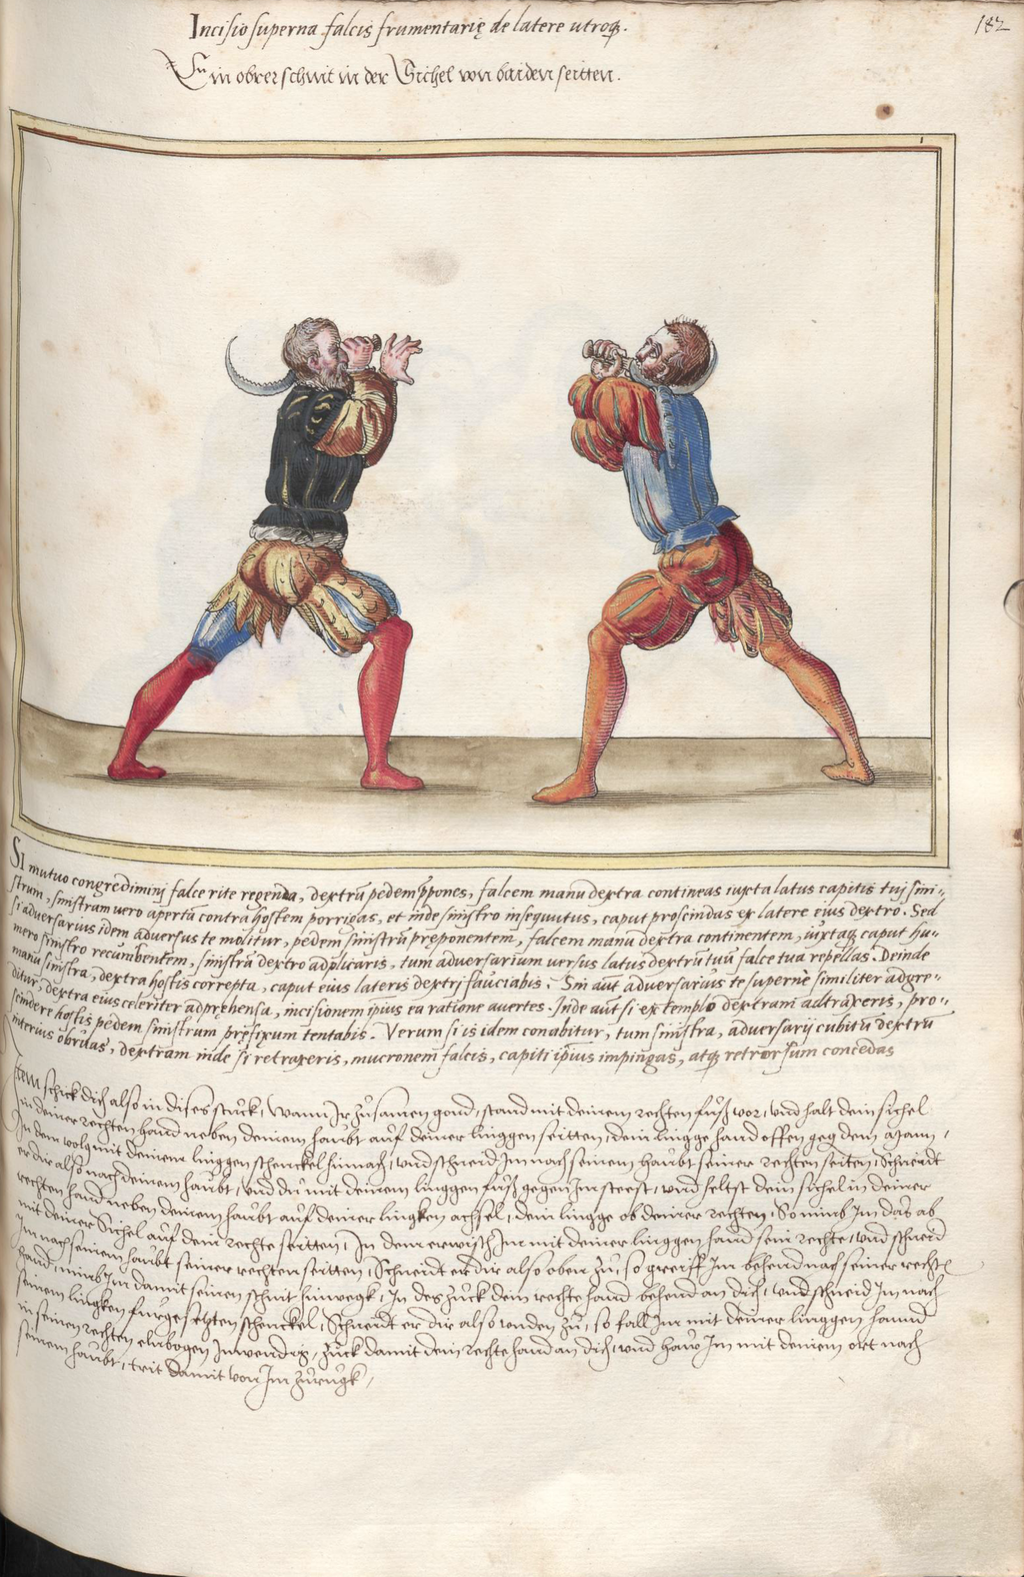 Incisio superna falcis frumentarię de latere utroq.
182
Ein obrer schnit in der Sichel von baiden seitten.
SI mutuo congredimini falce rite regenda, dextrū pedem ppones, falcem manu dextra contineas iuxta latus capitis tui sini-
strum, sinistram vero apertam contra hostem porrigas, et inde sinistro insequutus, caput proscindas ex latere eius dextro. Sed
si adversarius idem adversus te molitur, pedem sinistrū preponentem, falcem manu dextra continentem, iuxtaq caput hu-
mero sinistro recumbentem, sinistrā dextro adplicaris, tum adversarium versus latus dextrū tuū falce tua repellas. Deinde
manu sinistra, dextra hostis correpta, caput eius lateris dextri fauciabis. Sin aut adversarius te superne similiter adgre-
ditur, dextra eius celeriter adprehensa, incisionem ipsius ea ratione avertes. Inde aut si extemplo dextram adtraxeris, pro-
scindere hostis pedem sinistrum pręfixum tentabis. Verum si is idem conabitur, tum sinistra, adversarij cubitū dextrū
interius obruas, dextram inde si retraxeris, mucronem falcis, capiti ipsius impingas, atq retrorsum concedas
Item schick dich also in dises stuck, Wann Ir zusamen gond, stand mit deinem rechten fuß vor, und halt dein sichel
in deiner rechten hand neben deinem haubt auf deiner linggen seitten, dein lingge hand offen geg dem Mann,
In dem volg mit deinem linggen schenckel hinnach, und schneid Im nach seinem haubt seiner rechten seiten, Schneidt
er dir also nach deinem haubt, und du mit deinem linggen fuß gegen Im steest, und heltst dein sichel in deiner
rechten hand neben deinem haubt auf deiner lingken achsel, dein lingge ob deiner rechten, So nimb Im das ab
mit deiner Sichel auf dein rechte seitten, In dem erwisch Im mit deiner linggen hand sein rechte, und schneid
Im nach seinem haubt seiner rechten seitten, Schneidt er dir also oben zu, so greiff Im behend nach seiner rechte
hand, nimb Im damit seinen schnit hinwegk, In des zuck dein rechte hand behend an dich, und schneid Im nach
seinem lingken furgesetzten schenckel, Schneidt er dir also unden zu, so fall Im mit deiner linggen hannd
in seinen rechten elnbogen Inwendig, zuck damit dein rechte hand an dich, und haw Im mit deinem ort nach
seinem haubt, trit damit von Im zurugk,